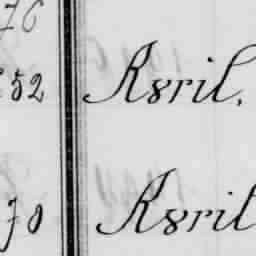 76
52 Avril,
70 Avril